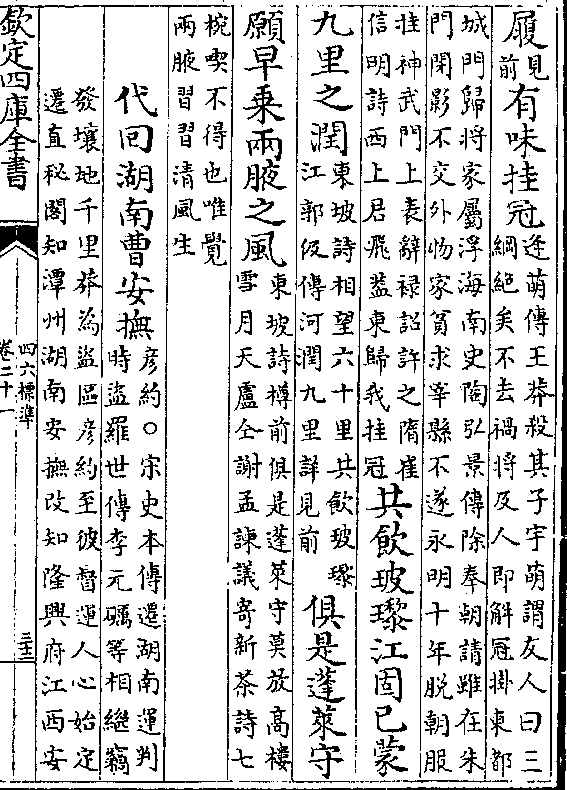 履見前有味挂冠逄萌傳王莽殺其子宇萌謂友人曰三
綱絕矣不去禍將及人即解冠掛東都
城門歸將家屬浮海南史陶弘景傳除奉朝請雖在朱
門閉影不交外物家貧求宰縣不遂永明十年脫朝服
挂神武門上表辭禄詔許之隋崔
信明詩西上君飛蓋東歸我挂冠共飲玻瓈江固已蒙
九里之潤東坡詩相望六十里共飲玻瓈
江郭伋傳河潤九里詳見前俱是蓬萊守
願早乗兩腋之風東坡詩樽前俱是蓬萊守莫放高樓
雪月天盧仝謝孟諫議寄新茶詩七
椀喫不得也唯覺
兩腋習習清風生
代回湖南曹安撫彦約○宋史本傳遷湖南運判
時盜羅世傳李元礪等相繼竊
發壤地千里莽為盜區彦約至彼督運人心始定
遷直秘閣知潭州湖南安撫改知隆興府江西安
欽定四庫全書
四六標準
卷二十一